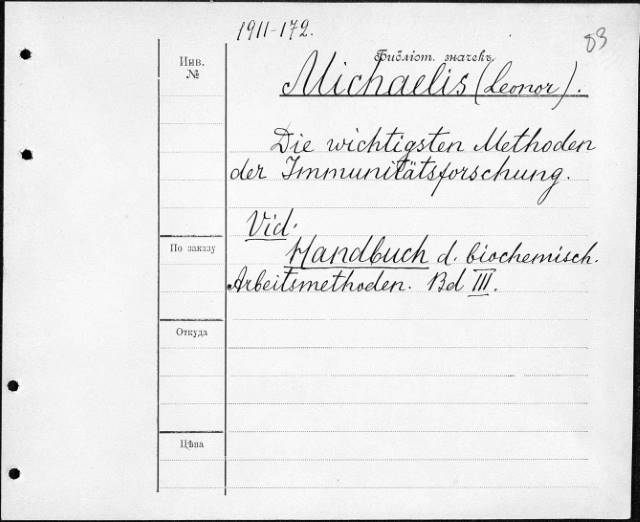 1911-172.
83
Инв.
№
Библіот. значекъ
Michaelis (Leonor).
Die wichtigsten Methoden
der Immunitätsforschung.
Vid.
По заказу
Handbuch d. biochemisch.
Arbeitsmethoden. Bd III.
Откуда
Цѣна